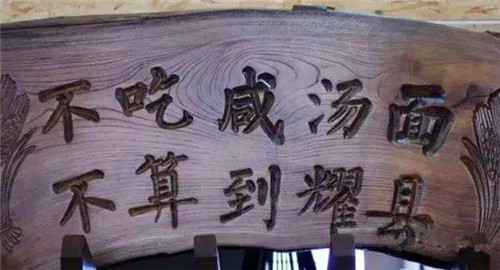 不吃咸汤面
不算到耀县